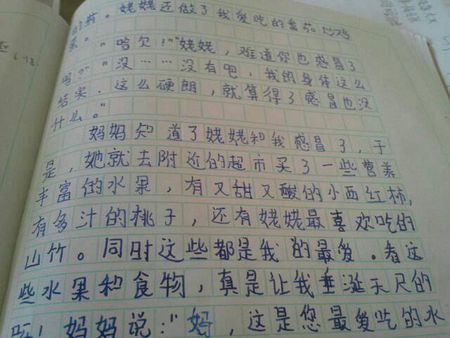 的药。姥姥还做了我爱吃的番茄炒鸡
"哈欠!""姥姥,难道你也感冒了
"没……没有吧,我的身体这么
结实,这么硬朗,就算得了感冒也没
什么。"
妈妈知道了姥姥和我感冒了,于
是,她就去附近的超市买了一些营养
丰富的水果,有又甜又酸的小西红柿,
有多汁的桃子,还有姥姥最喜欢吃的
山竹。同时这些都是我的最爱。看这
些水果和食物,真是让我垂涎天尺的
妈妈说:"妈,这是您最爱吃的水